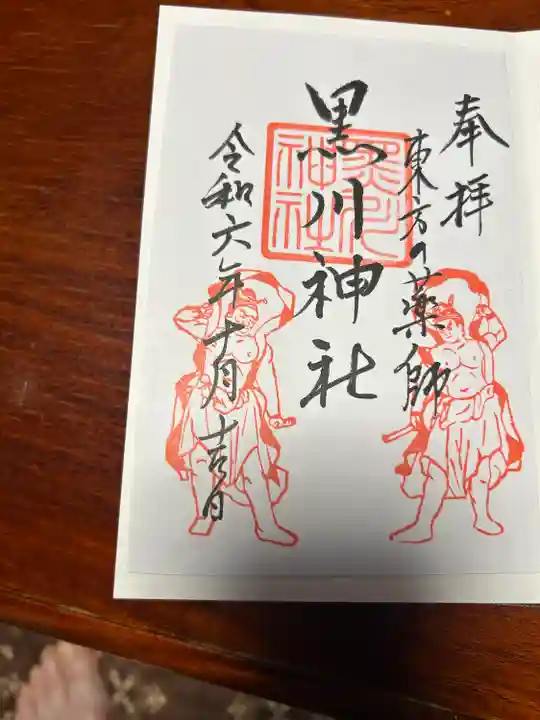 奉拝
東方の薬師
黒川神社
黒川
神社
令和六年十月吉日